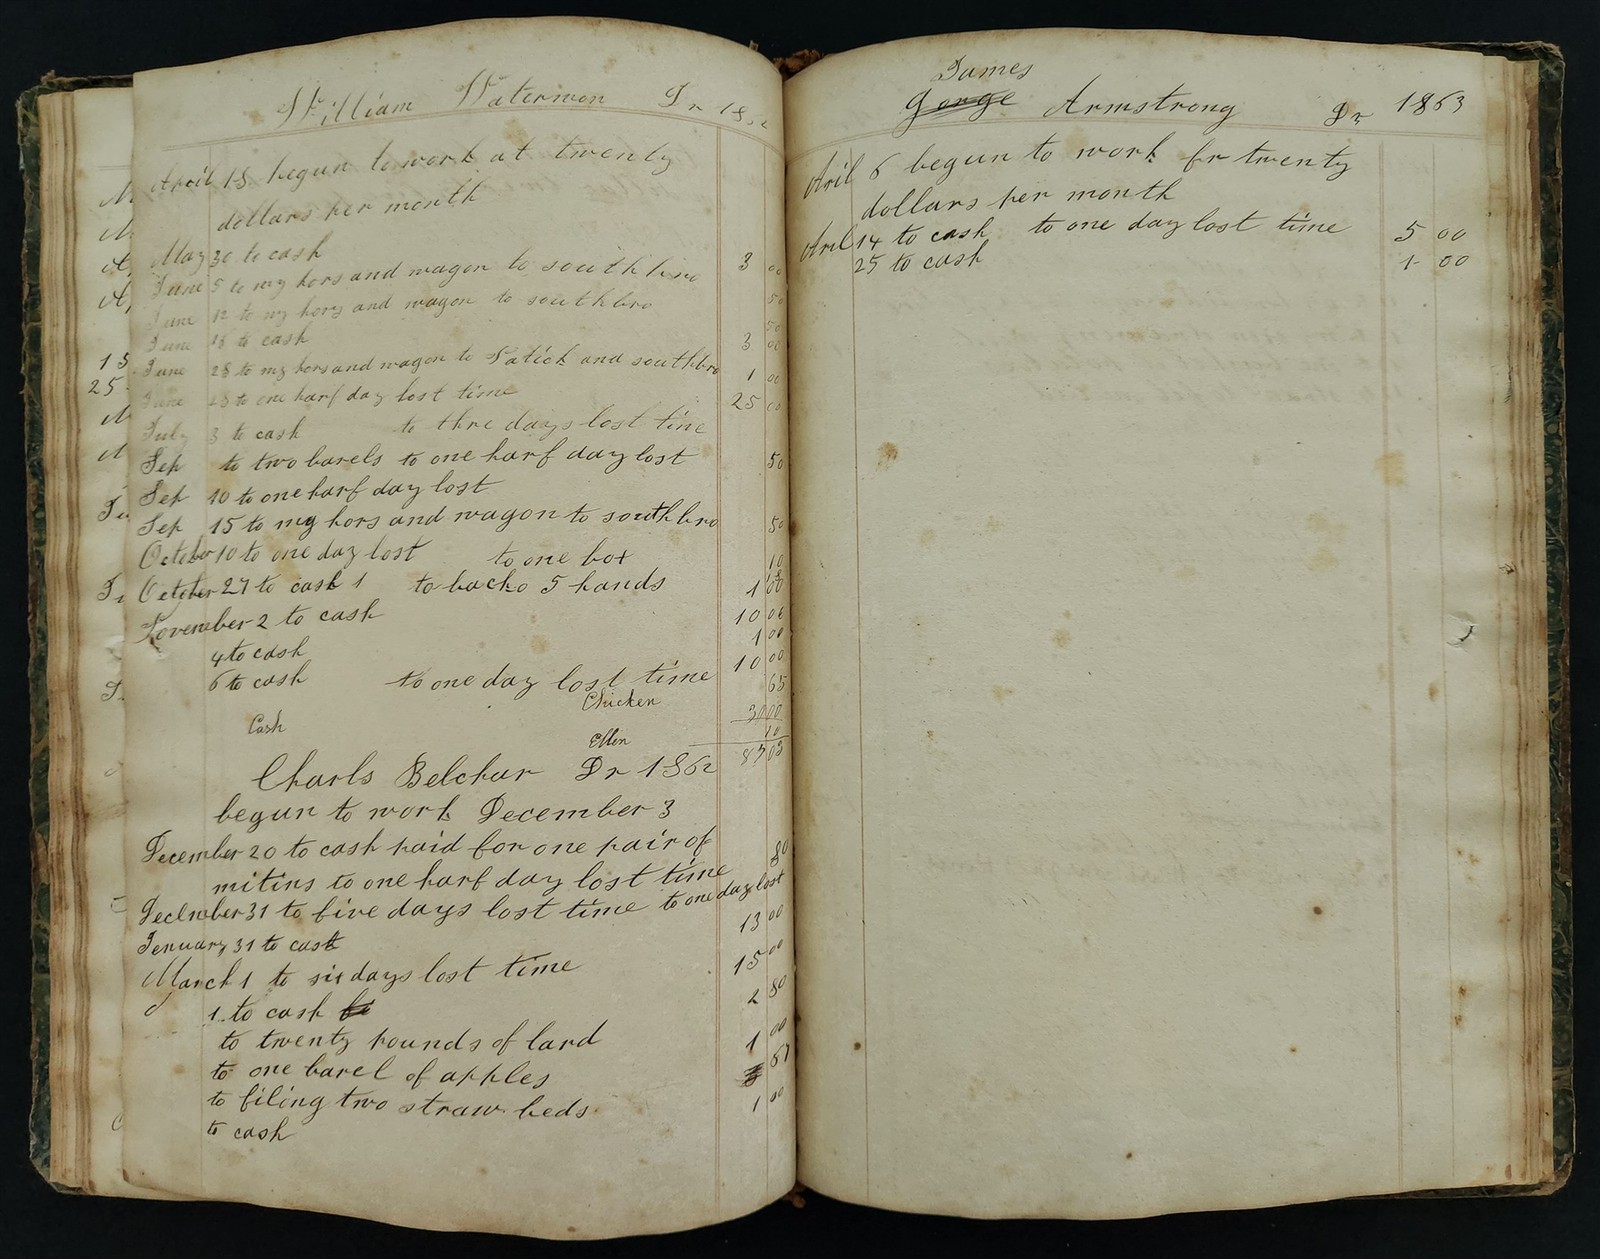 William Waterman Dr 1862
April 18 begun to work at twenty
dollars per month
May 30 to cash 3 00
June 5 to my hors and wagon to southbro 50
June 12 to my hors and wagon to southbro 50
June 18 to cash 3 00
June 28 to my hors and wagon to Natick and southbro 1 00
June 28 to one harf day lost time
July 3 to cash to thre days lost time 25 00
Sep to two barels to one harf day lost 50
Sep 10 to one harf day lost
Sep 15 to my hors and wagon to southbro 50
October 10 to one day lost to one box 10
October 27 to cash 1 to backo 5 hands 1 00
November 2 to cash 10 00
4 to cash 1 00
6 to cash to one day lost time 10 00
Chicken 65
Cash 30 00
Ellen 10
Charls Belchar Dr 1862
begun to work December 3
December 20 to cash paid for one pair of
mitins to one harf day lost time 80
December 31 to five days lost time to one day lost
January 31 to cash 13 00
March 1 to six days lost time
1 to cash 15 00
to twenty pounds of lard 2 80
to one barel of apples 1 00
to filing two straw beds 67
to cash 1 00
James
Gorge Armstrong Dr 1863
Aril 6 begun to work fr twenty
dollars per month
Aril 14 to cash to one day lost time 5 00
25 to cash 1 00
M
15
25